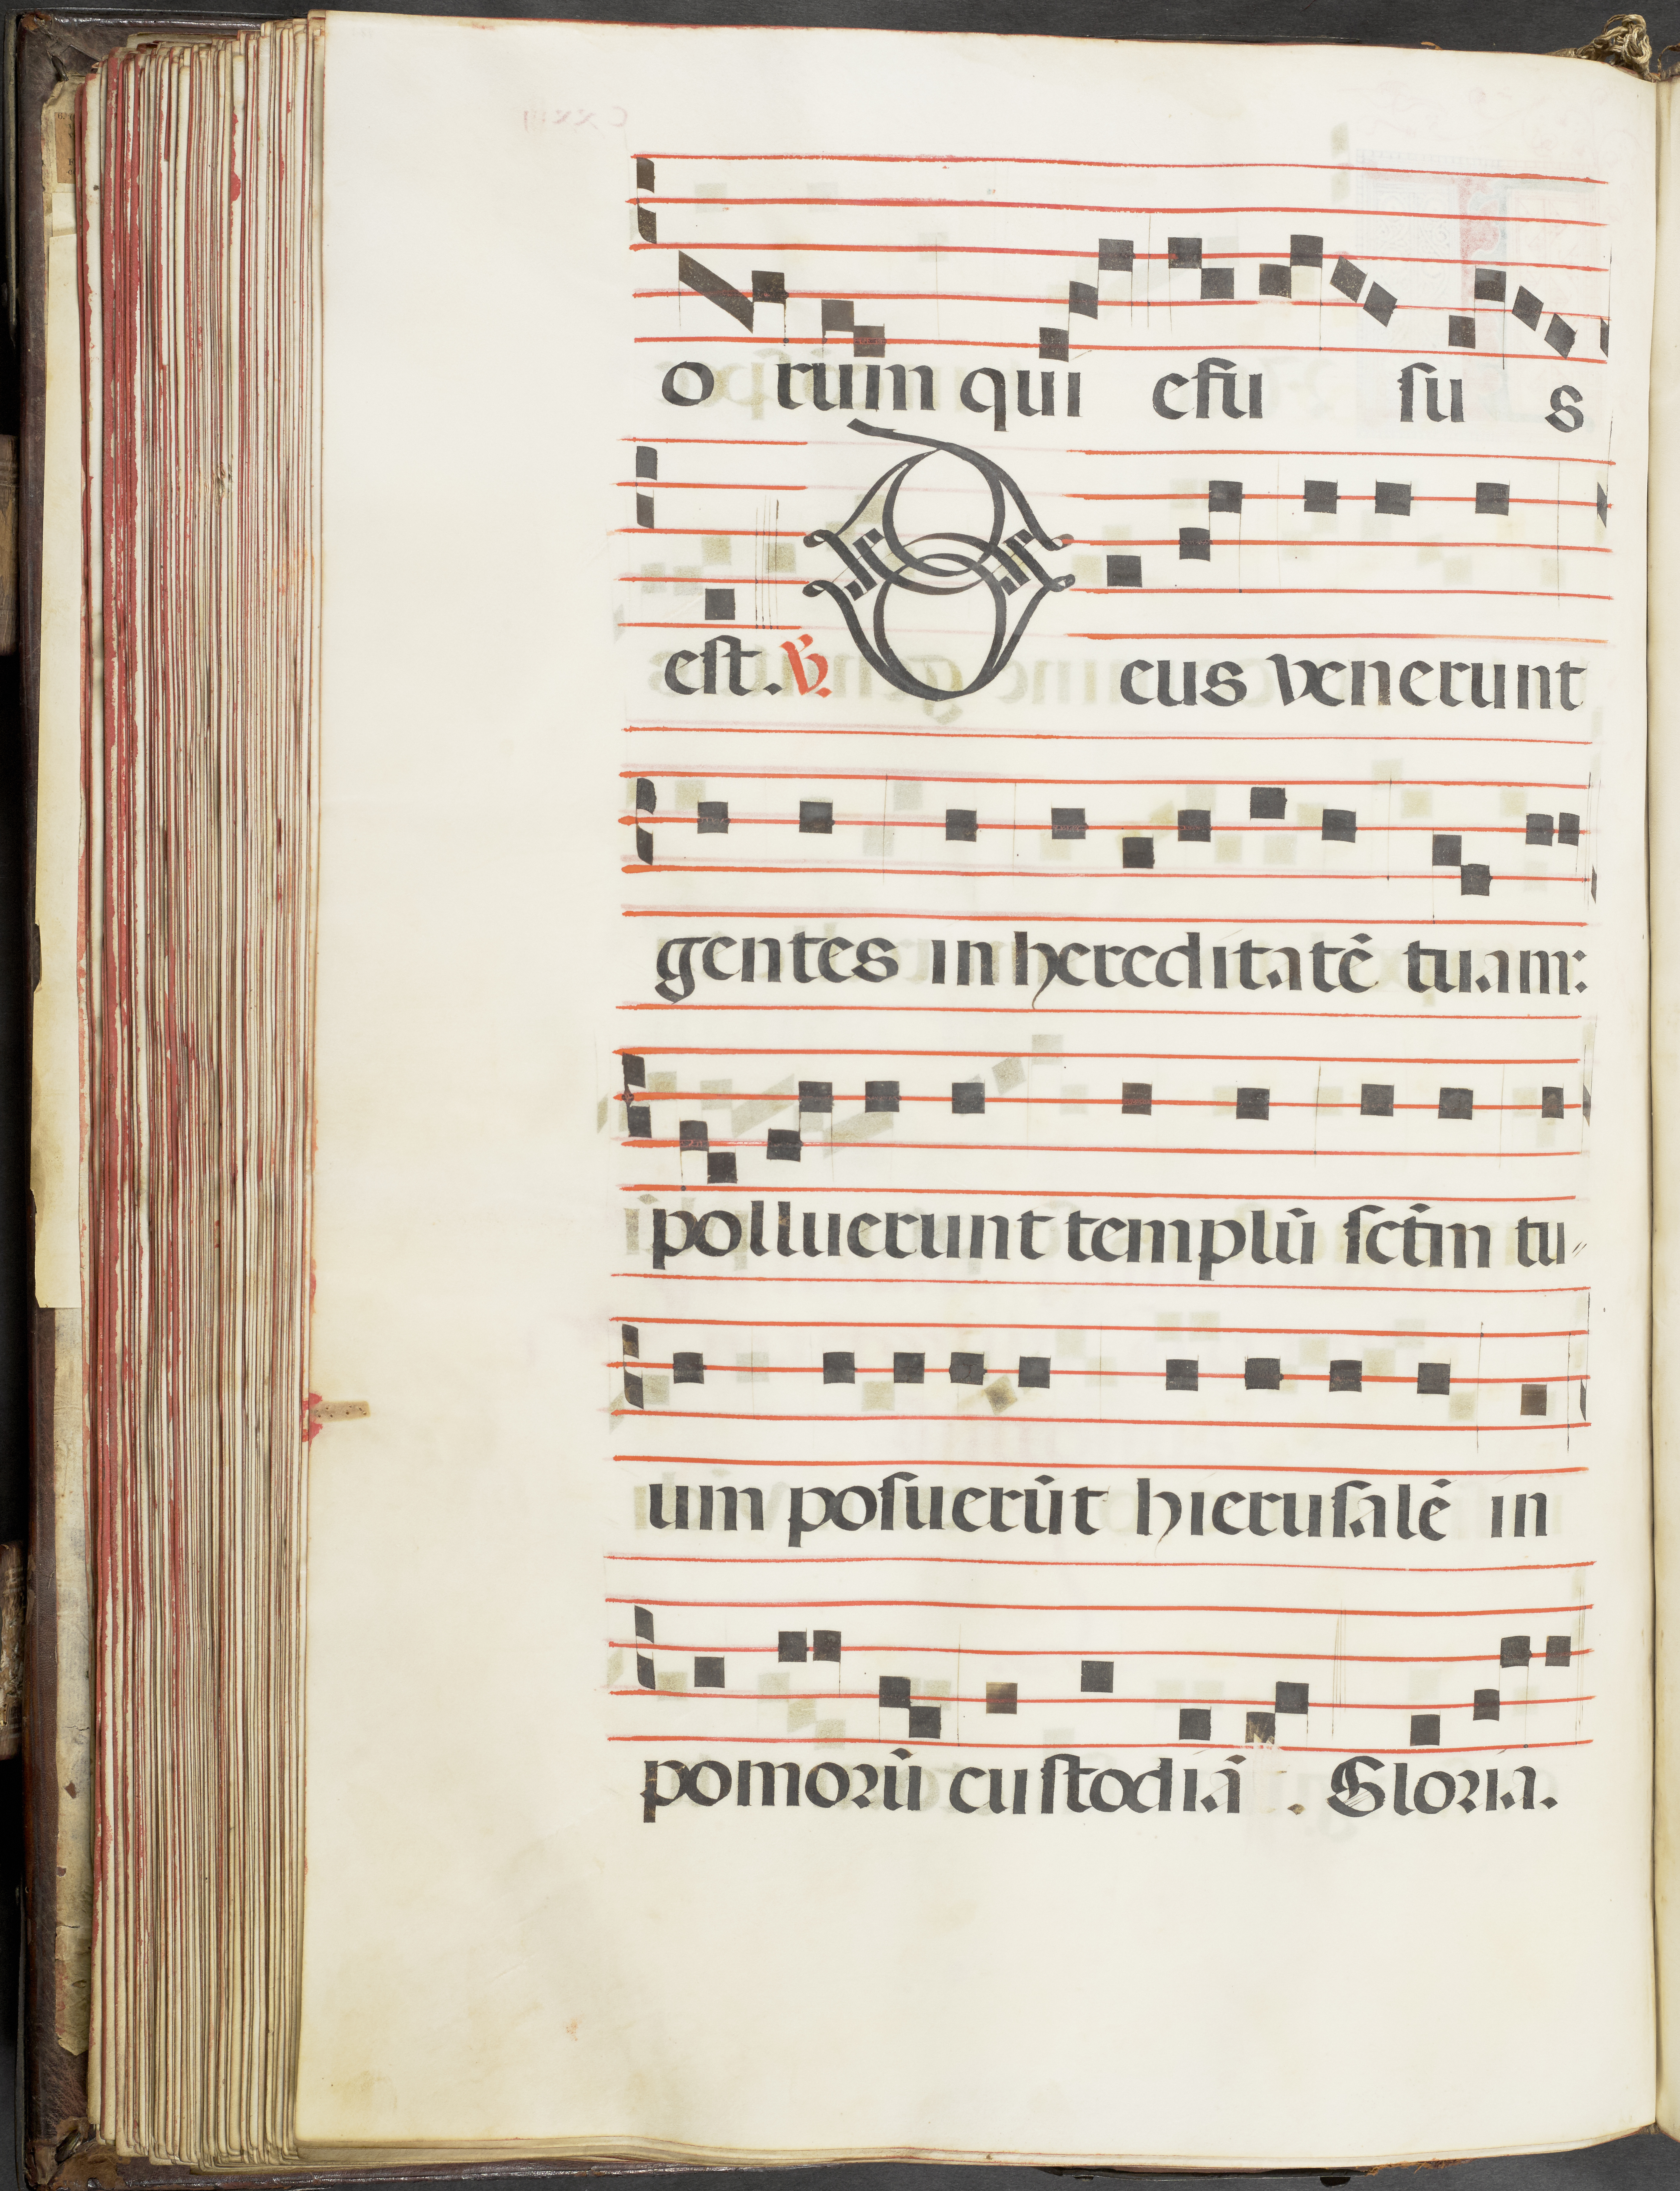 o rum qui efu su s
est. V. Deus venerunt
gentes in hereditatē tuam:
polluerunt templū sctm̄ tu〃
um posuerūt hierusalē in
pomorū custodiā . Gloria.